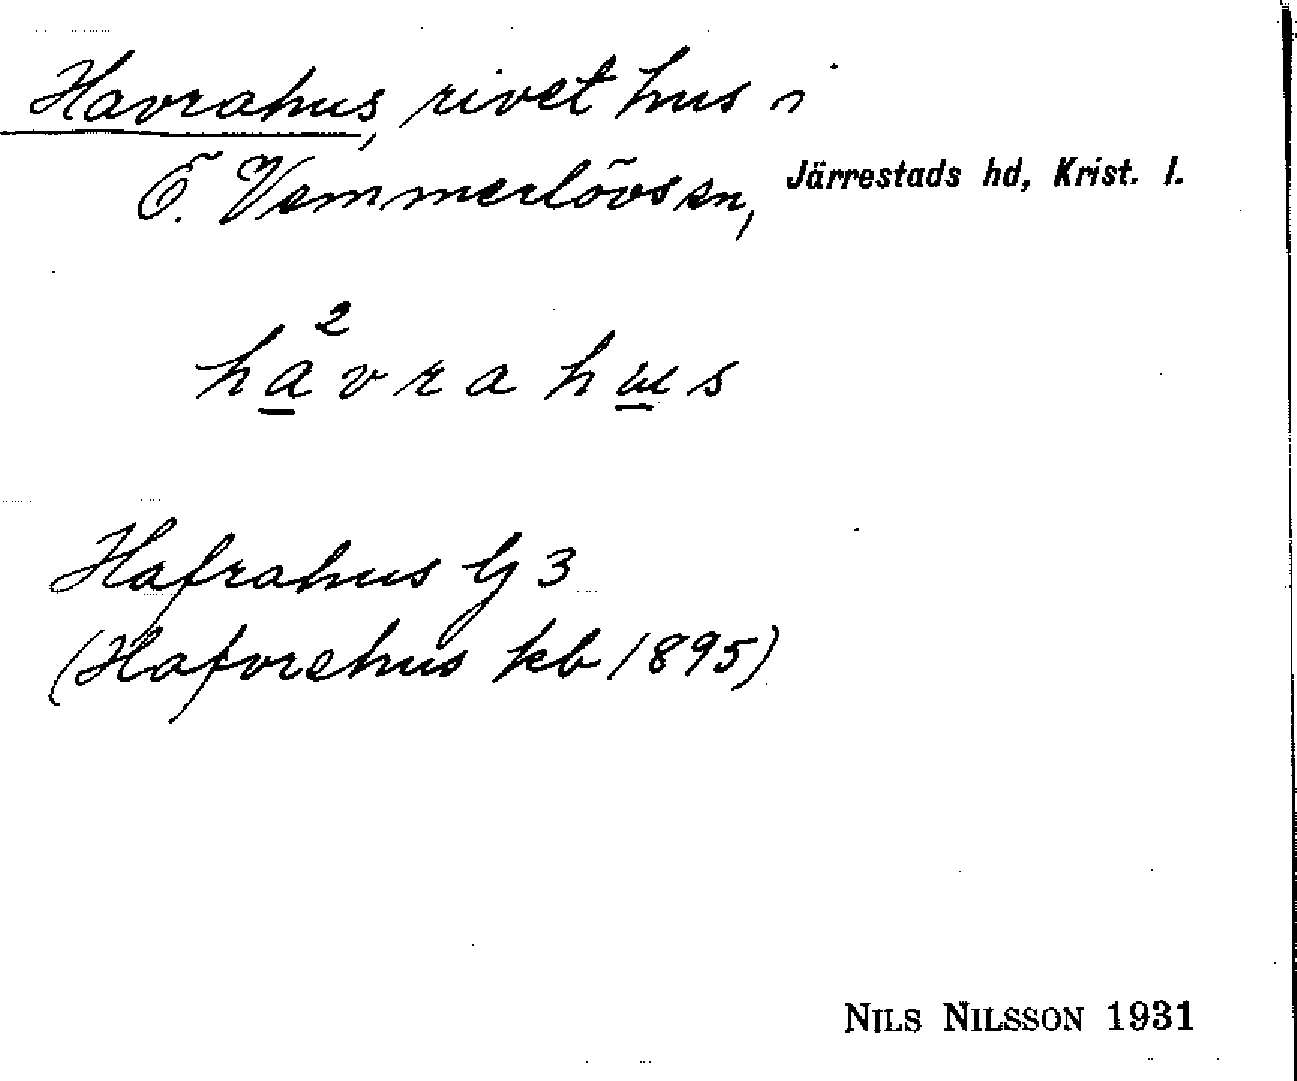 Havrahus, rivet hus i
Ö. Vemmerlövs sn, Järrestads hd, Krist. l.
2
havrahus
Hafrahus G 3
(Hafvrehus kb 1895)
NILS NILSSON 1931